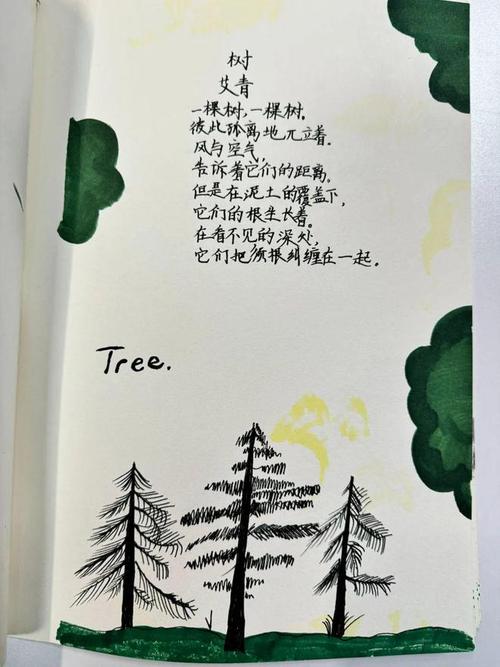 树
艾青
一棵树，一棵树。
彼此孤离地兀立着。
风与空气，
告诉着它们的距离。
但是在泥土的覆盖下，
它们的根生长着。
在看不见的深处，
它们把须根纠缠在一起。
Tree.